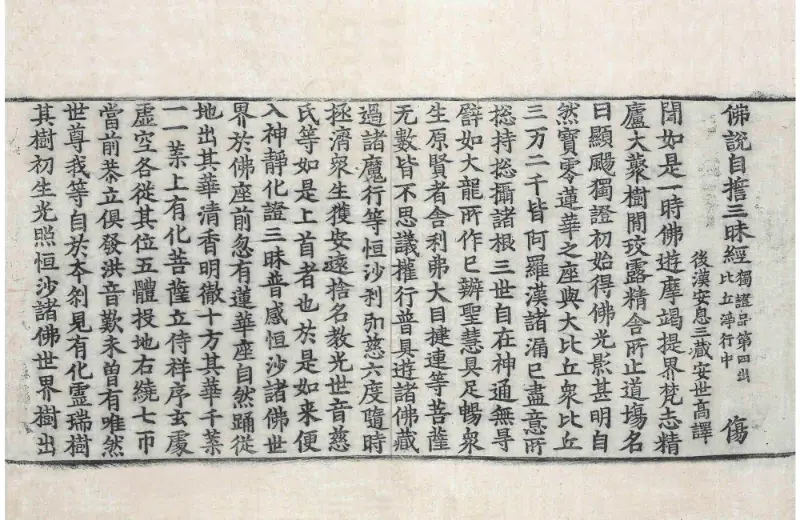 佛說自擔三昧經 獨證品第四出 比丘淨行中 傷
後漢安息三藏安世高譯
聞如是一時佛遊摩竭提界梵志精
廬大藂樹閒玫露精舍所止道塲名
曰顯颺獨證初始得佛光影甚明自
然寶零蓮華之座與大比丘衆比丘
三万二千皆阿羅漢諸漏已盡意所
捴持捴攝諸根三世自在神通無㝵
譬如大龍所作已辦聖慧具足暢衆
生原賢者舍利弗大目揵連等菩薩
无數皆不思議權行普具遊諸佛藏
過諸魔行等恒沙刹加慈六度隨時
拯濟衆生獲安遠捨名教光世音慈
氏等如是上首者也於是如來便
入神靜化證三昧普感恒沙諸佛世
界於佛座前忽有蓮華座自然踊從
地出其華清香明徹十方其華千葉
一一葉上有化菩薩立侍祥序玄處
虛空各從其位五體投地右繞七帀
當前恭立俱發洪音歎未曾有唯然
世尊我等自於本刹見有化靈瑞樹
其樹初生光照恒沙諸佛世界樹出